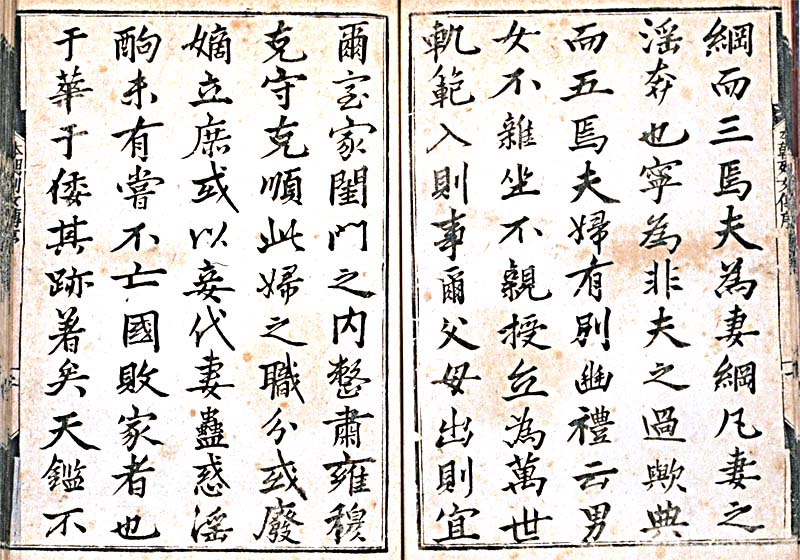 綱而三焉夫為妻綱凡妻之
淫奔也寧為非夫之過歟典
而五焉夫婦有別幽禮云男
女不雜坐不親授立為萬世
軌範入則事爾父母出則宜
爾室家閨門之内整肅雍穆
克守克順此婦之職分或廢
嫡立庶或以妾代妻蠱惑淫
酗未有嘗不亡國敗家者也
于華于倭其跡著矣天鑑不
本朝列女傳序